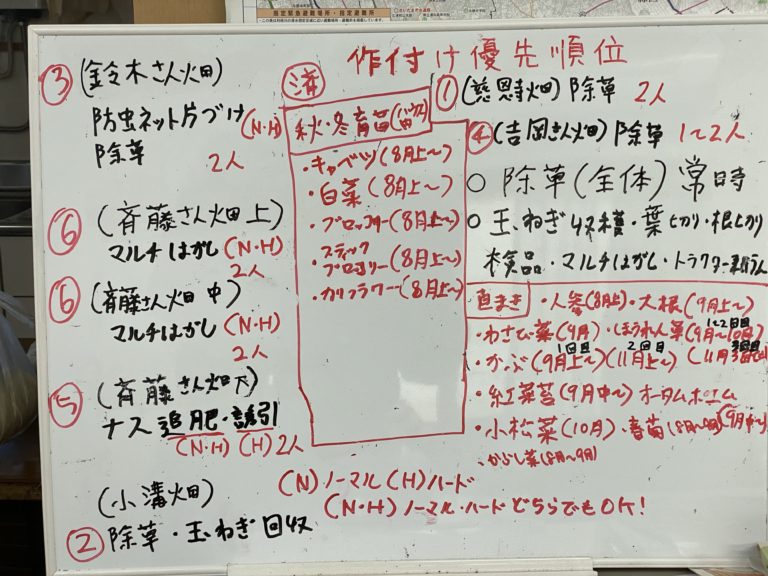 指定緊急避難場所・指定避難所
作付け優先順位
③ (鈴木さん畑)
防虫ネット片づけ (N・H)
除草 2人
⑥ (斉藤さん畑 上)
マルチはがし (N・H)
2人
⑥ (斉藤さん畑 中)
マルチはがし (N・H)
2人
⑤ (斉藤さん畑 下)
ナス 追肥・誘引
(N・H) (H) 2人
(小溝畑)
② 除草・玉ねぎ回収
済
秋・冬育苗
・キャベツ(8月上〜)
・白菜(8月上〜)
・ブロッコリー(8月上〜)
・スティック
ブロッコリー(8月上〜)
・カリフラワー(8月上〜)
① (慈恩寺畑) 除草 2人
④ (吉岡さん畑) 除草 1〜2人
○ 除草(全体) 常時
○ 玉ねぎ 収穫・葉切り・根切り
検品・マルチはがし・トラクター
直まき ・人参(8月上)・大根(9月上〜)
・わさび菜(9月)・ほうれん草(9月〜10月)
1〜2回目
・かぶ(9月上〜)(11月上〜)
1回目 2回目 3回目
・紅菜苔(9月中〜) オータムポエム
・小松菜(10月)・春菊(8月〜9月)(9月中〜)
・からし菜(8月〜9月)
(N)ノーマル (H)ハード
(N・H) ノーマル・ハードどちらでもOK!